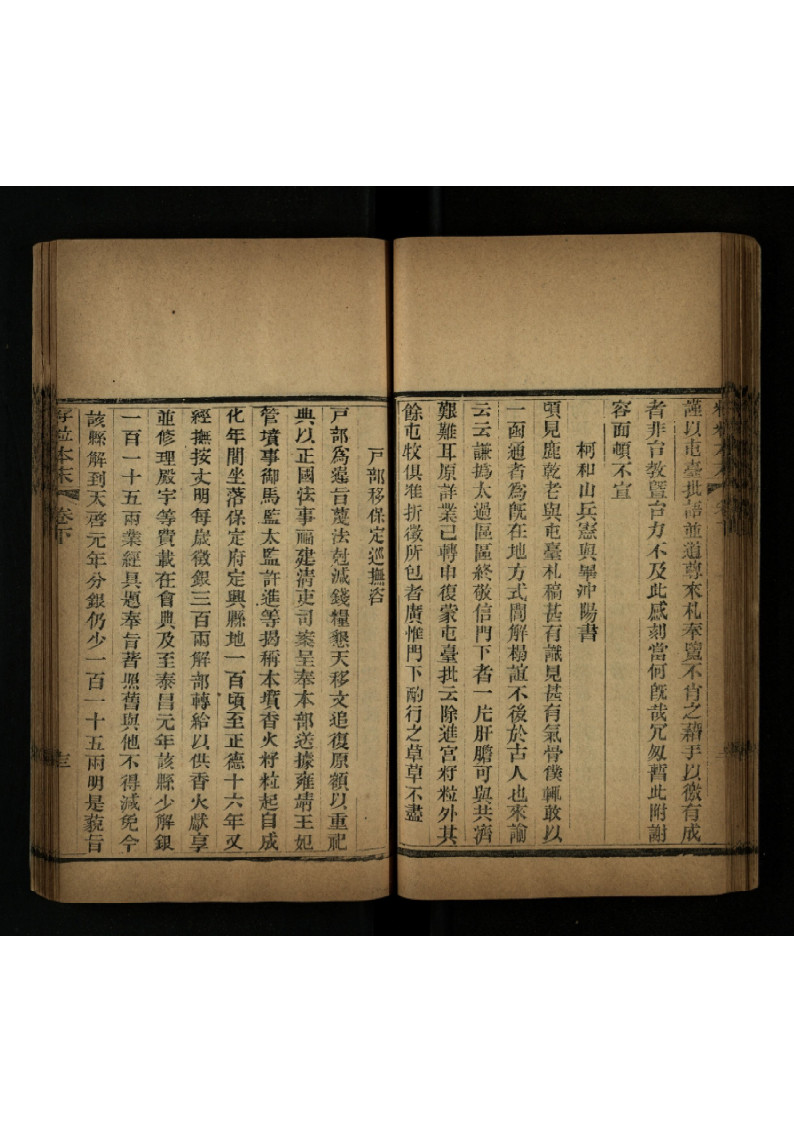 謹以屯臺批語並道尊來札奉覽不肖之藉手以徼有成
者非台教曁台力不及此感刻當何旣哉冗匆暫此附謝
容面頓不宣
柯和山兵憲與畢沖陽書
頃見鹿乾老與屯臺札稿甚有識見甚有氣骨僕輒敢以
一函通者爲旣在地方式閭解榻誼不後於古人也來諭
云云謙撝太過區區終敬信門下者一片肝膽可與共濟
艱難耳原詳業已轉申復蒙屯臺批云除進宮籽粒外其
餘屯牧俱准折徵所包者廣惟門下酌行之草草不盡
戸部移保定巡撫咨
戸部爲違旨蔑法尅減錢糧懇天移文追復原額以重祀
典以正國法事福建清吏司案呈奉本部送據雍靖王妃
管墳事御馬監太監許進等揭稱本墳香火籽粒起自成
化年間坐落保定府定興縣地一百頃至正德十六年又
經撫按丈明每歲徵銀三百兩解部轉給以供香火獻享
並修理殿宇等費載在會典及至泰昌元年該縣少解銀
一百一十五兩業經具題奉旨著照舊與他不得減免今
該縣解到天啓元年分銀仍少一百一十五兩明是藐旨
籽粒本末
卷下